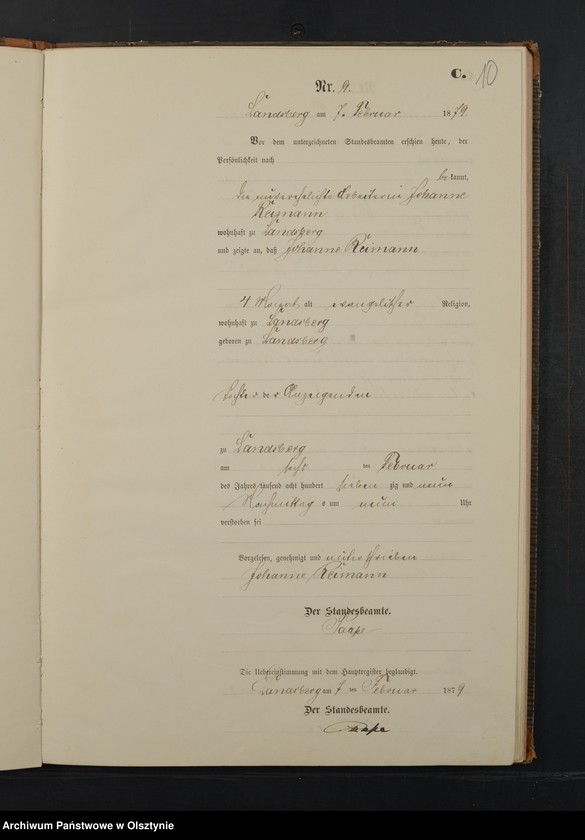 C. 10
Nr. 9.
Landsberg am 7. Februar 1879.
Vor dem unterzeichneten Standesbeamten erschien heute, der
Persönlichkeit nach
bekannt,
die unverehelichte Arbeiterin Johanne
Reimann
wohnhaft zu Landsberg
und zeigte an, daß Johanne Reimann
4 Monat alt evangelischer Religion,
wohnhaft zu Landsberg
geboren zu Landsberg
Tochter der Anzeigenden
zu Landsberg
am sechs ten Februar
des Jahres tausend acht hundert sieben zig und neun
Nachmittags um neun Uhr
verstorben sei
Vorgelesen, genehmigt und unterschrieben
Johanne Reimann
Der Standesbeamte.
Paape
Die Uebereinstimmung mit dem Hauptregister beglaubigt.
Landsberg am 7 ten Februar 1879
Der Standesbeamte.
Paape
Archiwum Państwowe w Olsztynie